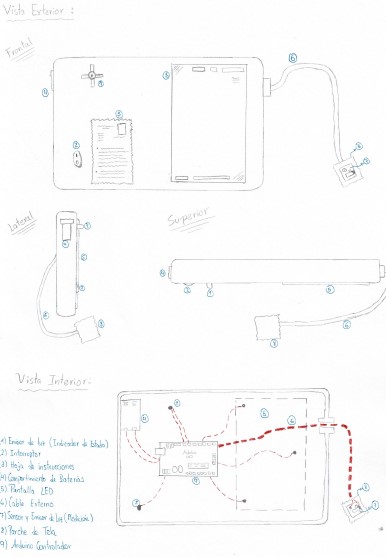 Vista Exterior :
Frontal
Lateral
Superior
Vista Interior:
1) Emisor de luz (Indicador de Estados)
2) Interruptor
3) Hoja de instrucciones
4) Compartimiento de Baterías
5) Pantalla LED
6) Cable Externo
7) Sensor y Emisor de luz (Medición)
8) Parche de Tela
9) Arduino Controlador